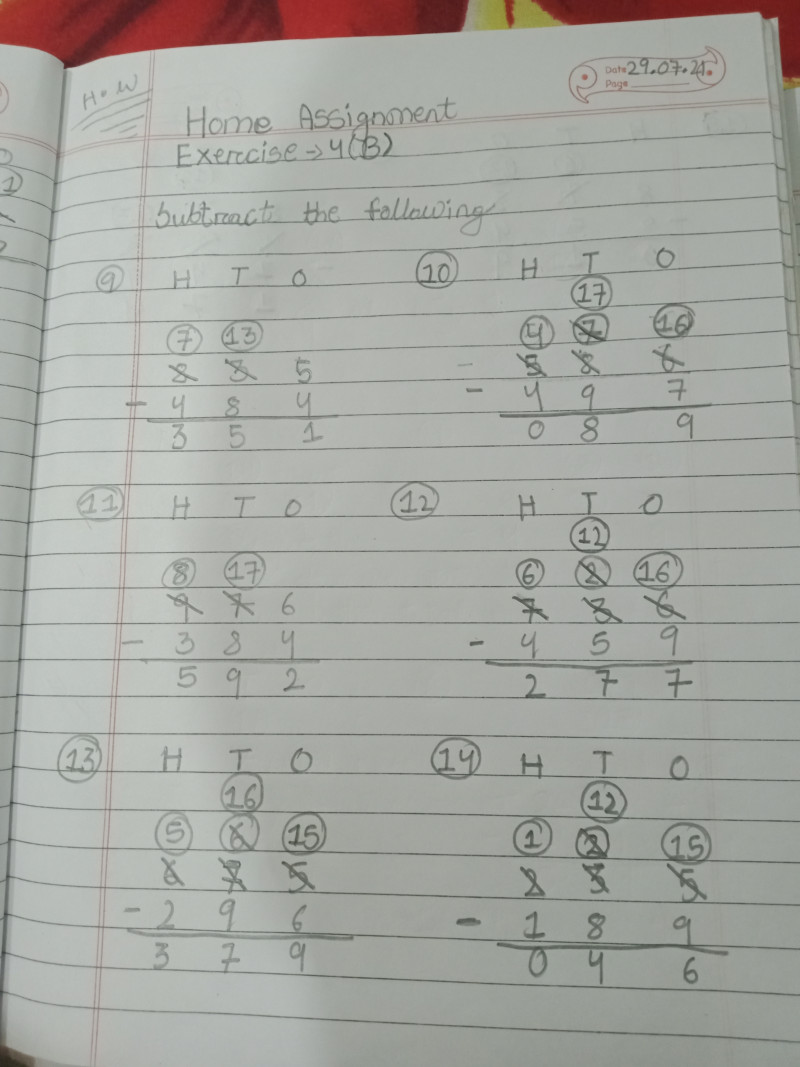 H.W
Date 29.07.21.
Page
Home Assignment
Exercise → 4(B)
Subtract the following
9 H T O
7 13
8 3 5
- 4 8 4
3 5 1
10 H T O
17
4 7 16
5 8 6
- 4 9 7
0 8 9
11 H T O
8 17
9 7 6
- 3 8 4
5 9 2
12 H T O
12
6 2 16
7 3 6
- 4 5 9
2 7 7
13 H T O
16
5 6 15
6 7 5
- 2 9 6
3 7 9
14 H T O
12
1 2 15
2 3 5
- 1 8 9
0 4 6